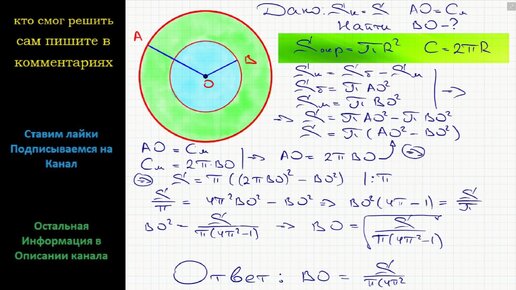 кто смог решить
сам пишите в
комментариях
Ставим лайки
Подписываемся на
Канал
Остальная
Информация в
Описании канала
Дано: Sк = S AO = Cм
Найти BO - ?
Sокр = πR² C = 2πR
A
B
O
Sк = Sб - Sм
Sб = πAO²
Sм = πBO²
⇒ S = πAO² - πBO²
S = π(AO² - BO²)
AO = Cм
Cм = 2π·BO
⇒ AO = 2πBO
⇒ S = π((2πBO)² - BO²) |:π
S/π = 4π²BO² - BO² ⇒ BO²(4π² - 1) = S/π
BO² = S/π(4π²-1) → BO = √S/π(4π²-1)
Ответ: BO = S/π(4π²